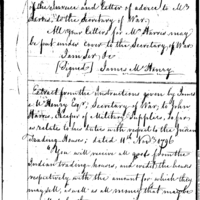 of the Invoice and Letter of advice to Mr
to the Secretary of War.
All your Letters for Mr Harris may
be put under cover to the Secretary of War.
I am Sir &c
[Signed] James McHenry
Extract from the Instructions given by James
McHenry Esqr Secretary of War, to John
Harris, keeper of Military Supplies, so far
as relate to his duties with regard to the Indian
Trading Houses; dated 11th Novr 1796
"You will receive all goods from the
Indian trading houses, and credit the houses
respectively with the amount for which they
may sell, as well as all money that may be